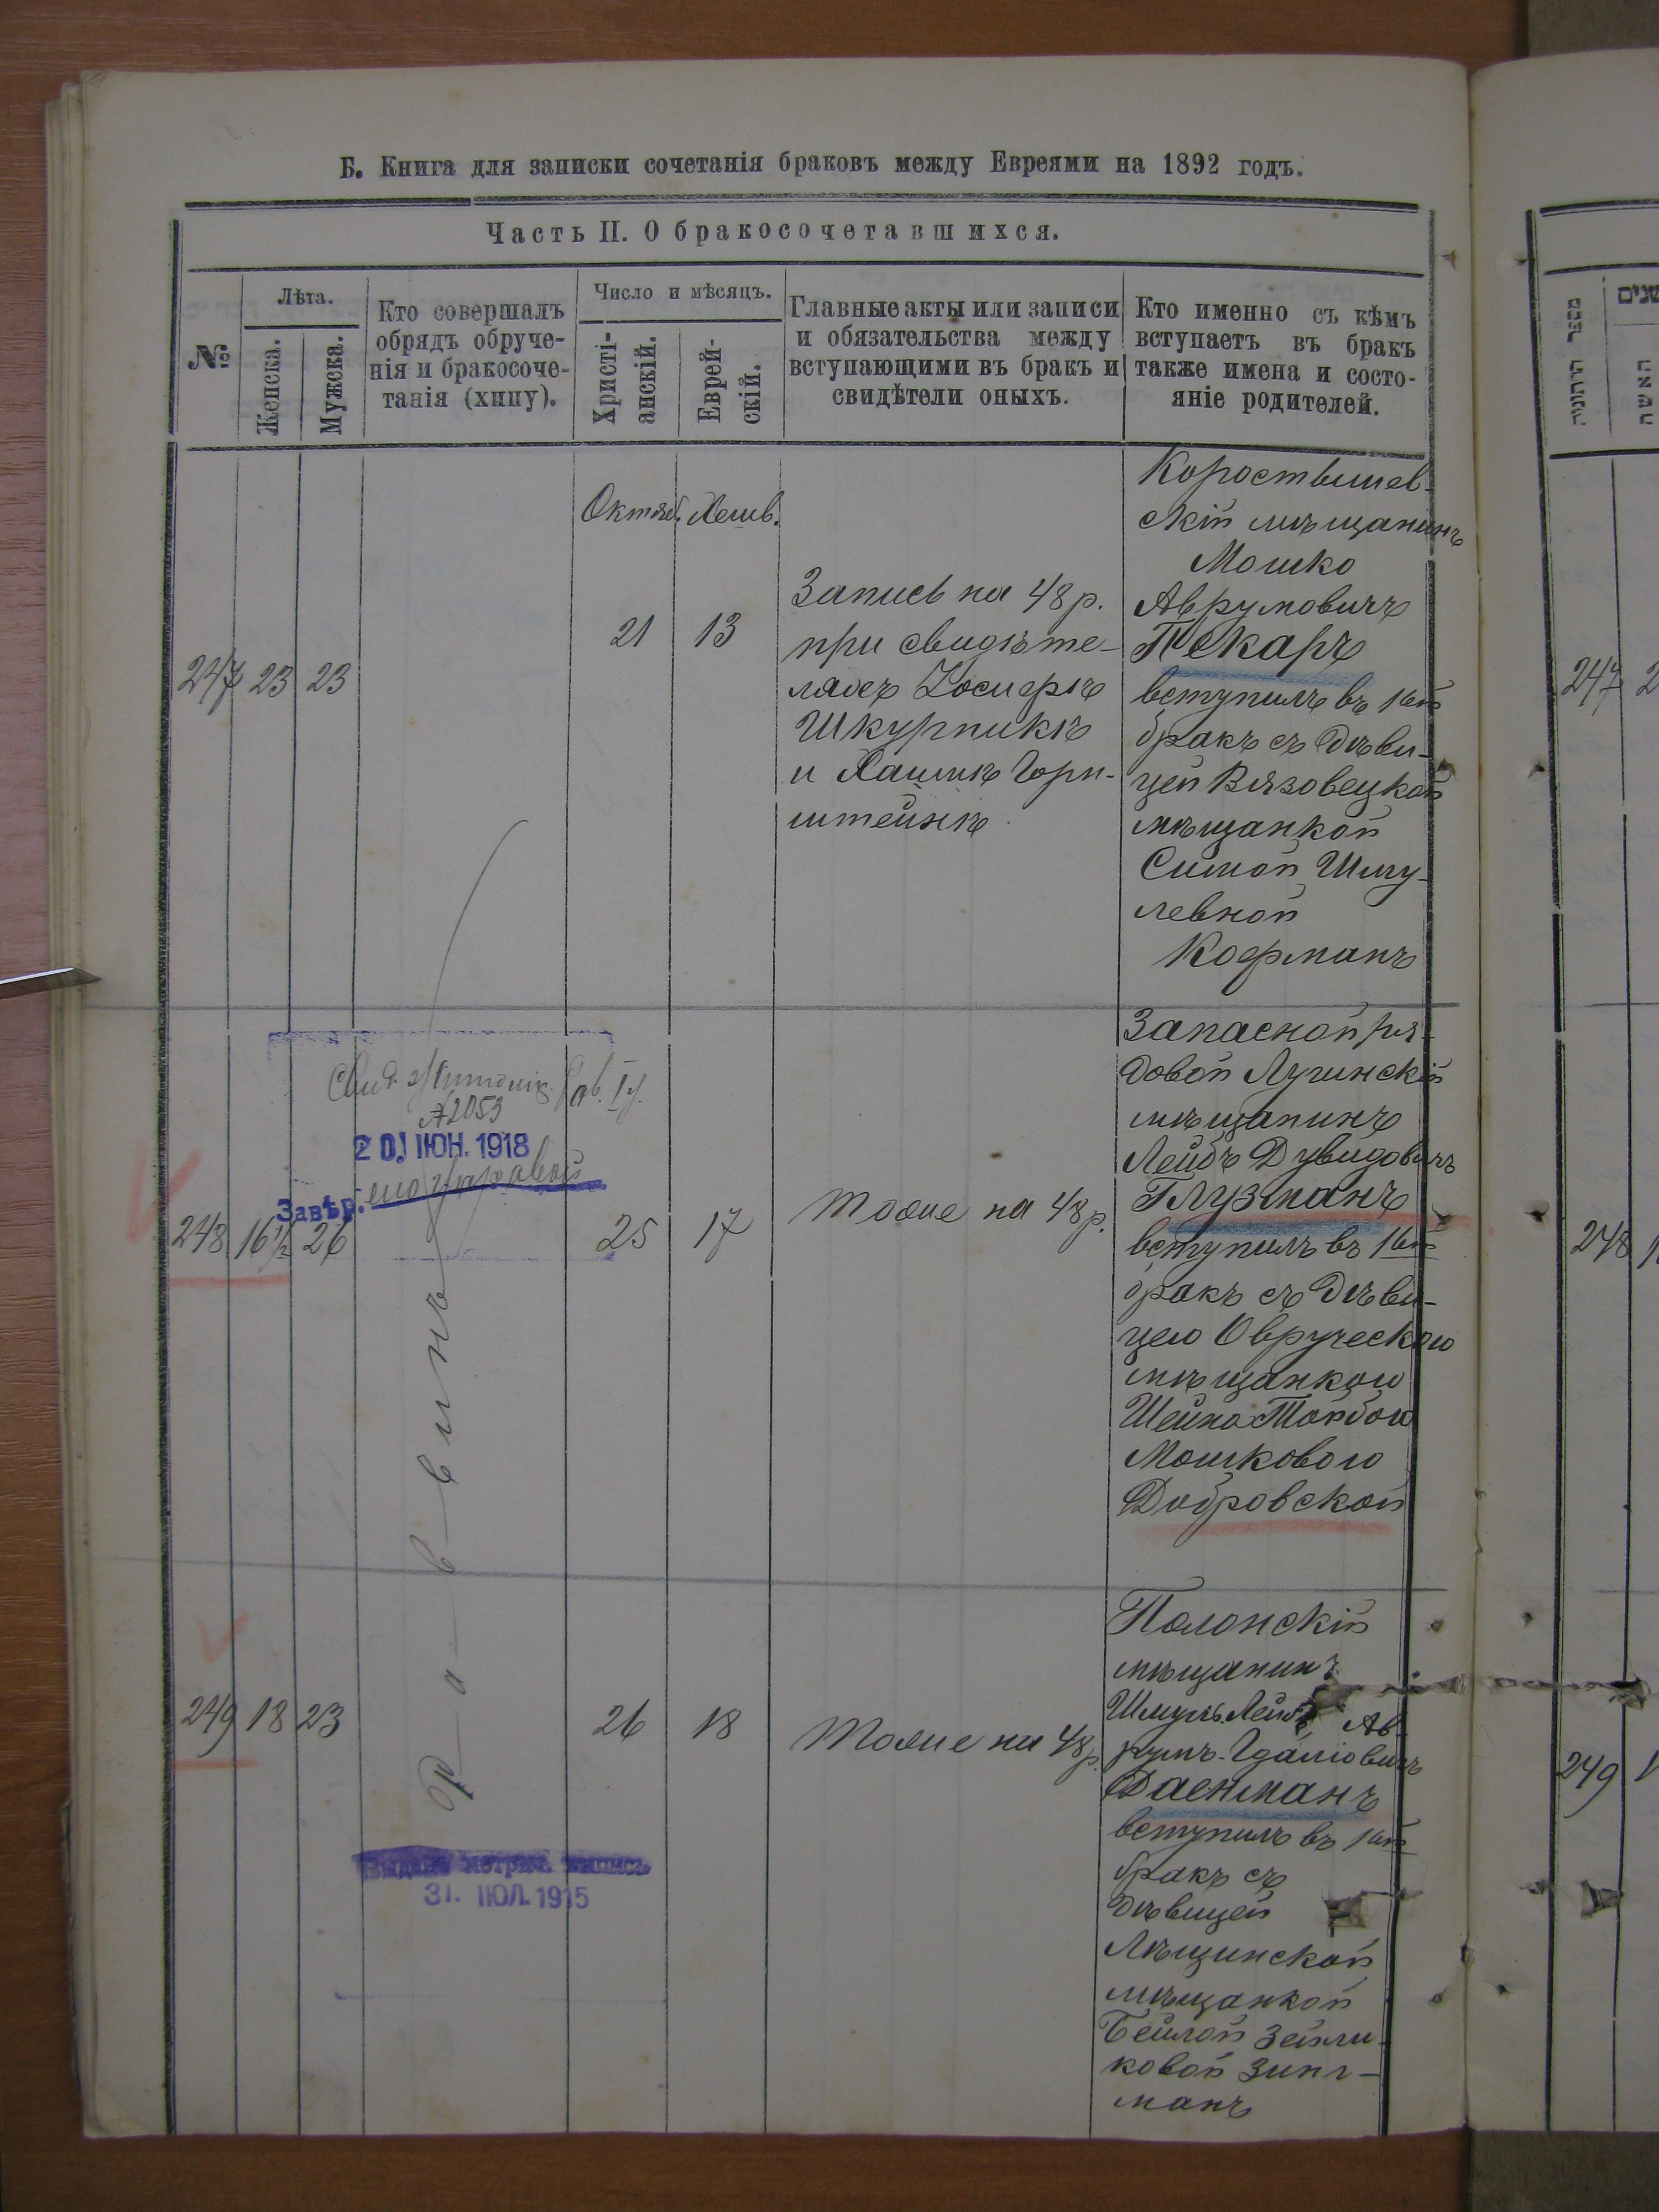 Б. Книга для записки сочетанія браковъ между Евреями на 1892 годъ.
Часть II. О бракосочетавшихся.
№
Лѣта.
Женска.
Мужска.
Кто совершалъ
обрядъ обруче-
нія и бракосоче-
танія (хипу).
Число и мѣсяцъ.
Христі-
анскій.
Еврей-
скій.
Главные акты или записи
и обязательства между
вступающими въ бракъ и
свидѣтели оныхъ.
Кто именно съ кѣмъ
вступаетъ въ бракъ
также имена и состо-
яніе родителей.
247 23 23
Октяб. Хешв.
21 13
Запись на 48 р.
при свидѣте-
ляхъ
Шкурникѣ
и Хаимѣ Горн-
штейнѣ
Коростышев-
скій мѣщанинъ
Мошко
Аврумовичъ
Пекаръ
вступилъ въ 1ый
бракъ съ дѣви-
цей Вязовецкой
мѣщанкой
Симой Шму-
левной
Кофманъ
248 16 1/2 26
Свид. Житомір. Рав.
№ 2053
20 ІЮН. 1918
Завѣр.
25 17
Тоже на 48 р.
Запасной ря-
довой Лугинскій
мѣщанинъ
Лейбъ Дувидовичъ
Глузманъ
вступилъ въ 1ый
бракъ съ дѣви-
цею Овруческою
мѣщанкою
Шейна Тойбою
Мошковою
Добровской
Раввинъ
249 18 23
26 18
Тоже на 48 р.
Выдана метрич. выпись
31. ІЮЛ. 1915
Полонскій
мѣщанинъ
Шмуль Лейбъ Ав-
румъ-Гдаліовичъ
Даенманъ
вступилъ въ 1ый
бракъ съ
дѣвицей
Лѣщинской
мѣщанкой
Бейлой Зейли-
ковой Зинг-
манъ
מספר החתונה
שנים
האשה
247 2
248 1
249 1